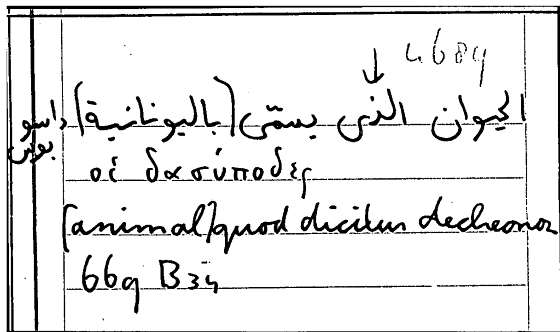 468q
↓
الحيوان الذى يسمّى (باليونانية) داسو
بوس
οἱ δασύποδες
[animal] quod dicitur decheonoz
66q B34